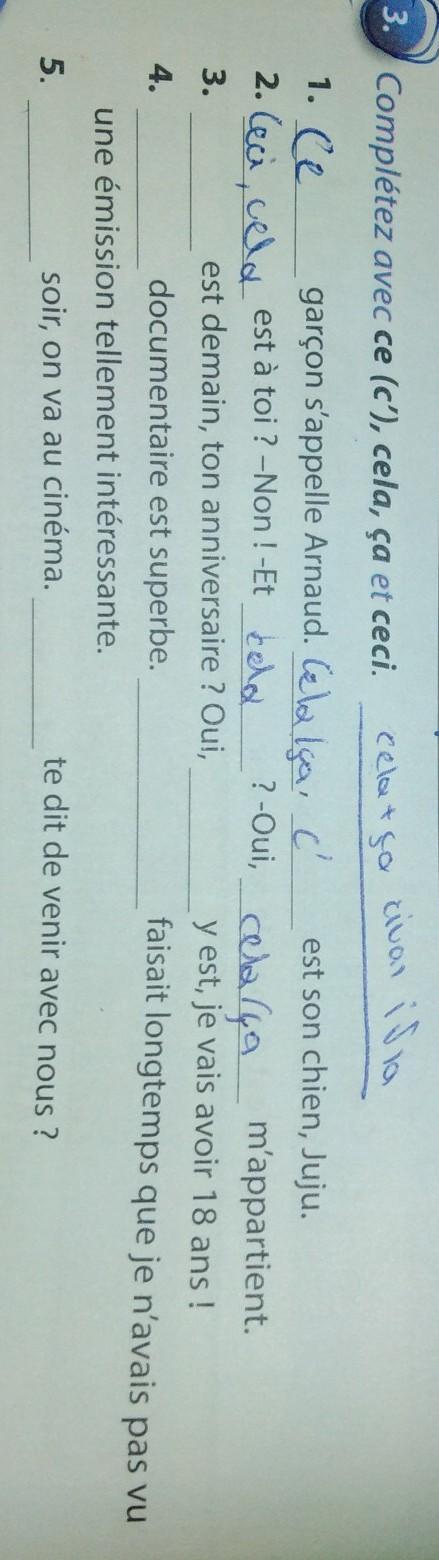 3. Complétez avec ce (c'), cela, ça et ceci. cela + ça
1. Ce garçon s'appelle Arnaud. Cela/ça, C' est son chien, Juju.
2. Ceci, cela est à toi ? –Non ! -Et cela ? -Oui, cela/ça m'appartient.
3. ______ est demain, ton anniversaire ? Oui, ______ y est, je vais avoir 18 ans !
4. ______ documentaire est superbe. ______ faisait longtemps que je n'avais pas vu
une émission tellement intéressante.
5. ______ soir, on va au cinéma. ______ te dit de venir avec nous ?